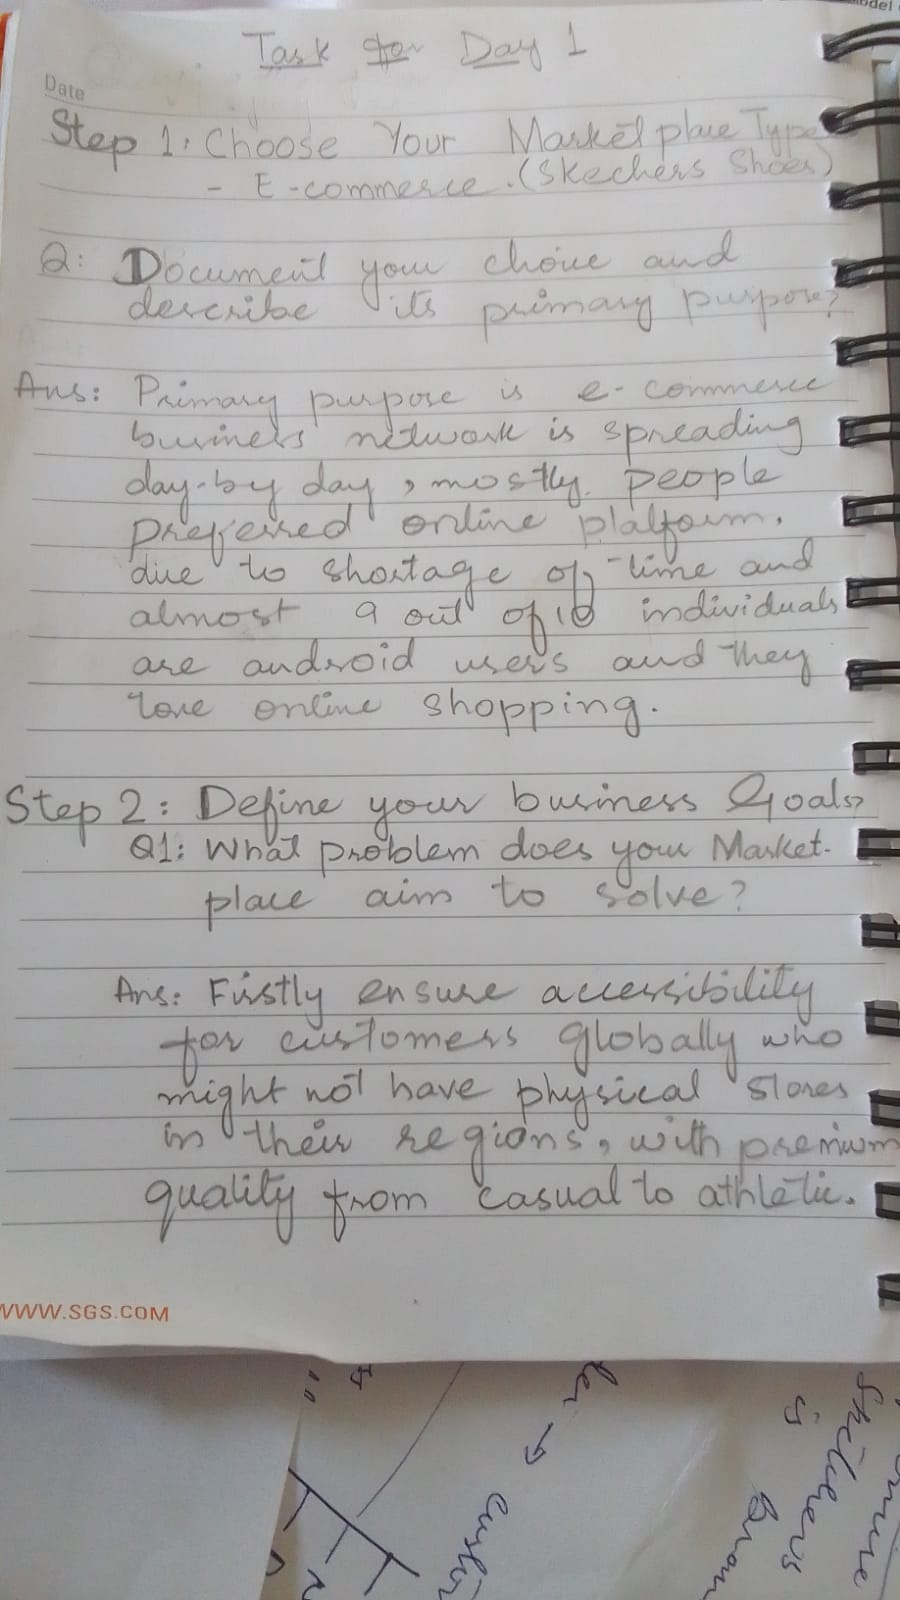 Task for Day 1
Date
Step 1: Choose Your Marketplace Type
- E-commerce. (Skechers Shoes)
Q: Document your choice and
describe its primary purpose?
Ans: Primary purpose is e-commerce
business network is spreading
day-by day, mostly people
preferred online platform.
due to shortage of time and
almost 9 out of 10 individuals
are android users and they
love online shopping.
Step 2: Define your business Goals
Q1: What problem does your Market-
place aim to solve?
Ans: Firstly ensure accessibility
for customers globally who
might not have physical stores
in their regions, with premium
quality from casual to athletic.
WWW.SGS.COM
Skechers
is